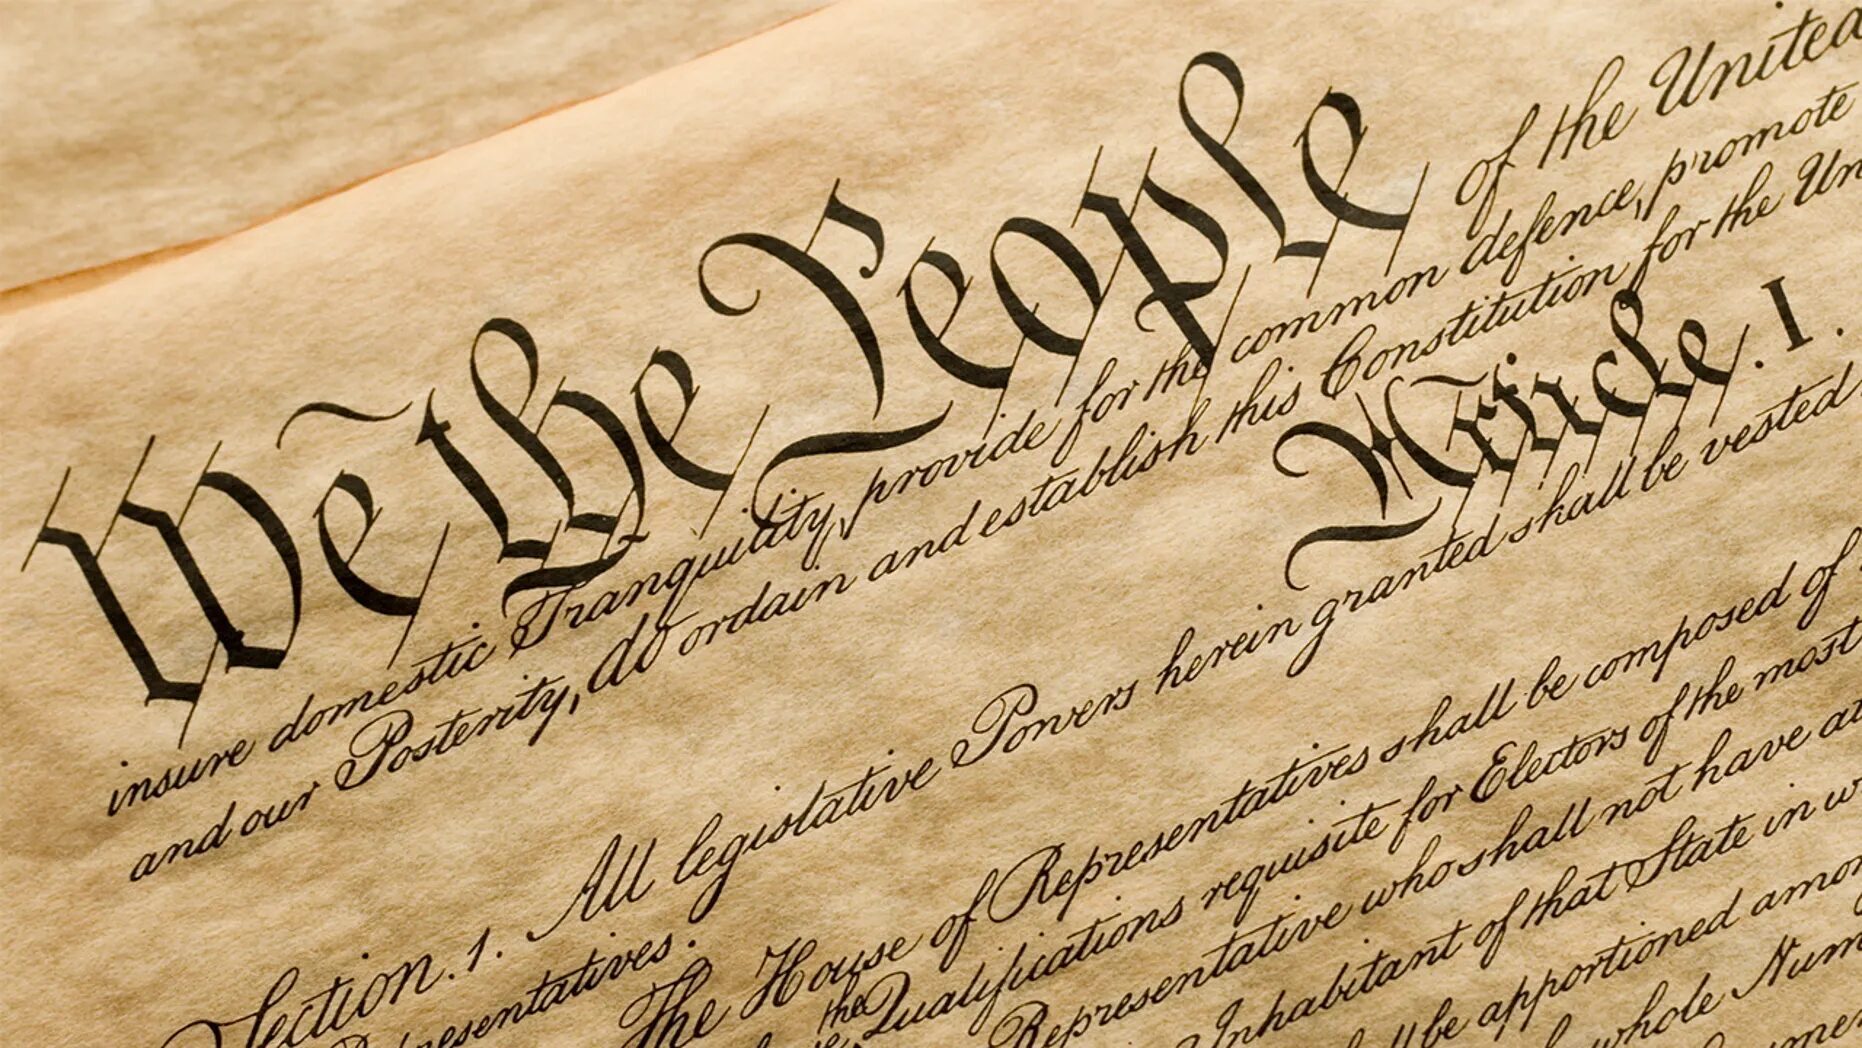 We the People of the United
insure domestic Tranquility, provide for the common defence, promote
and our Posterity, do ordain and establish this Constitution for the Un
Article. I.
Section. 1. All legislative Powers herein granted shall be vested
Representatives.
The House of Representatives shall be composed of
the Qualifications requisite for Electors of the most
Representative who shall not have at
Inhabitant of that State in w
ll be apportioned amon
whole Num